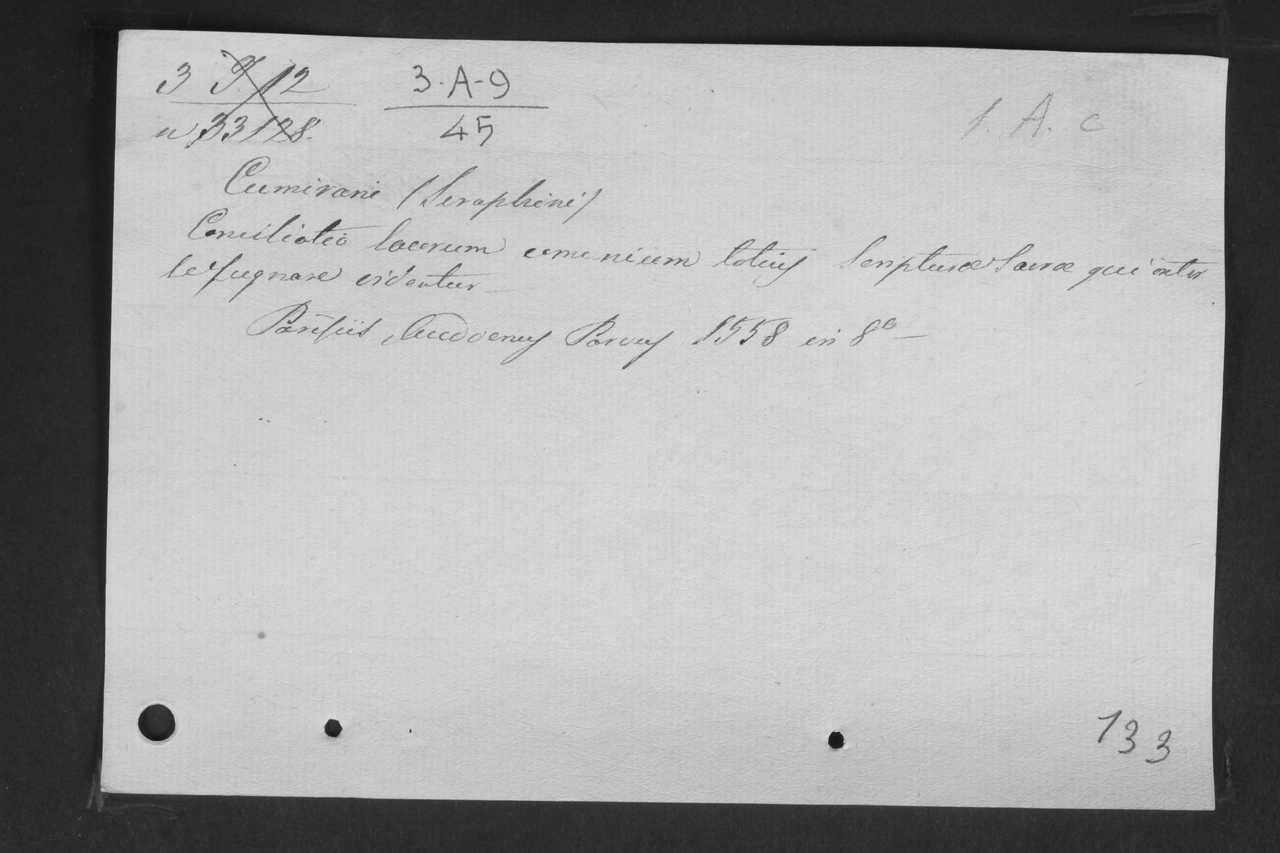 3 J. 12
n 33128.
3-A-9
45
1. A. c
Cumirani (Seraphini)
Conciliatio locorum comunium totius Scripturæ Sacræ qui inter
se pugnare videntur
Parisiis, Audoenus Parvus 1558 in 8º —
133